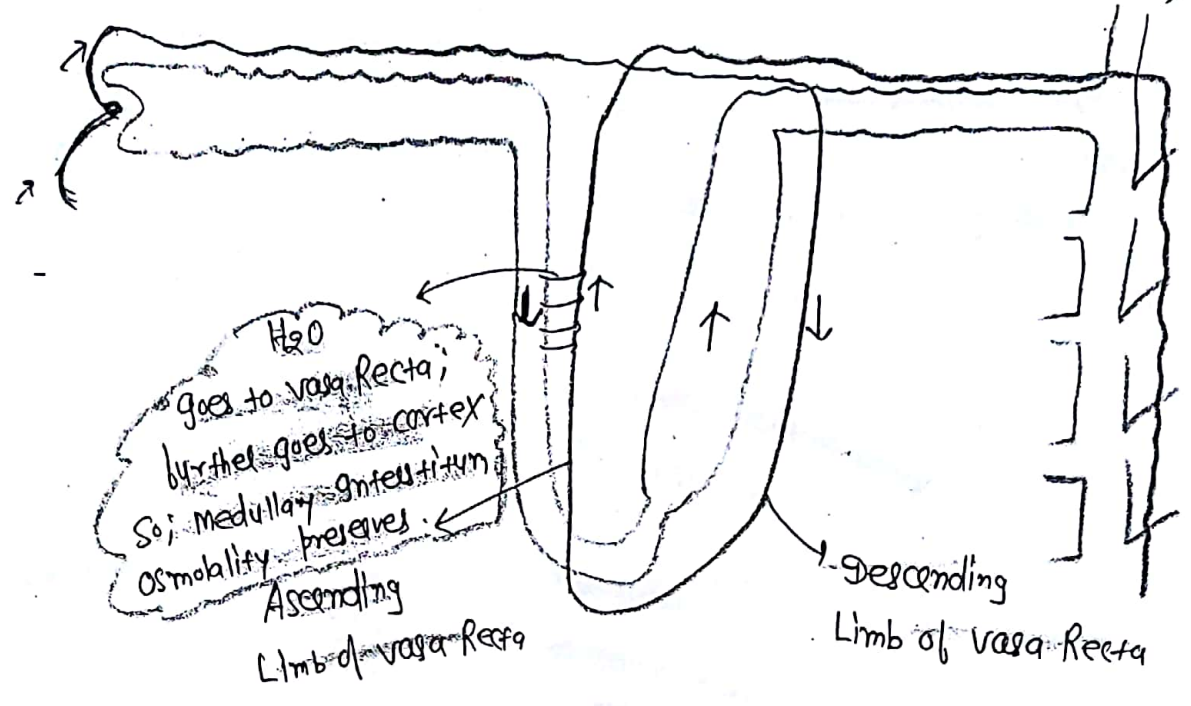 H₂O
goes to vasa Recta;
further goes to cortex
So; medullary Interstitium
osmolality preserves.
Ascending
Limb of vasa Recta
Descending
Limb of vasa Recta